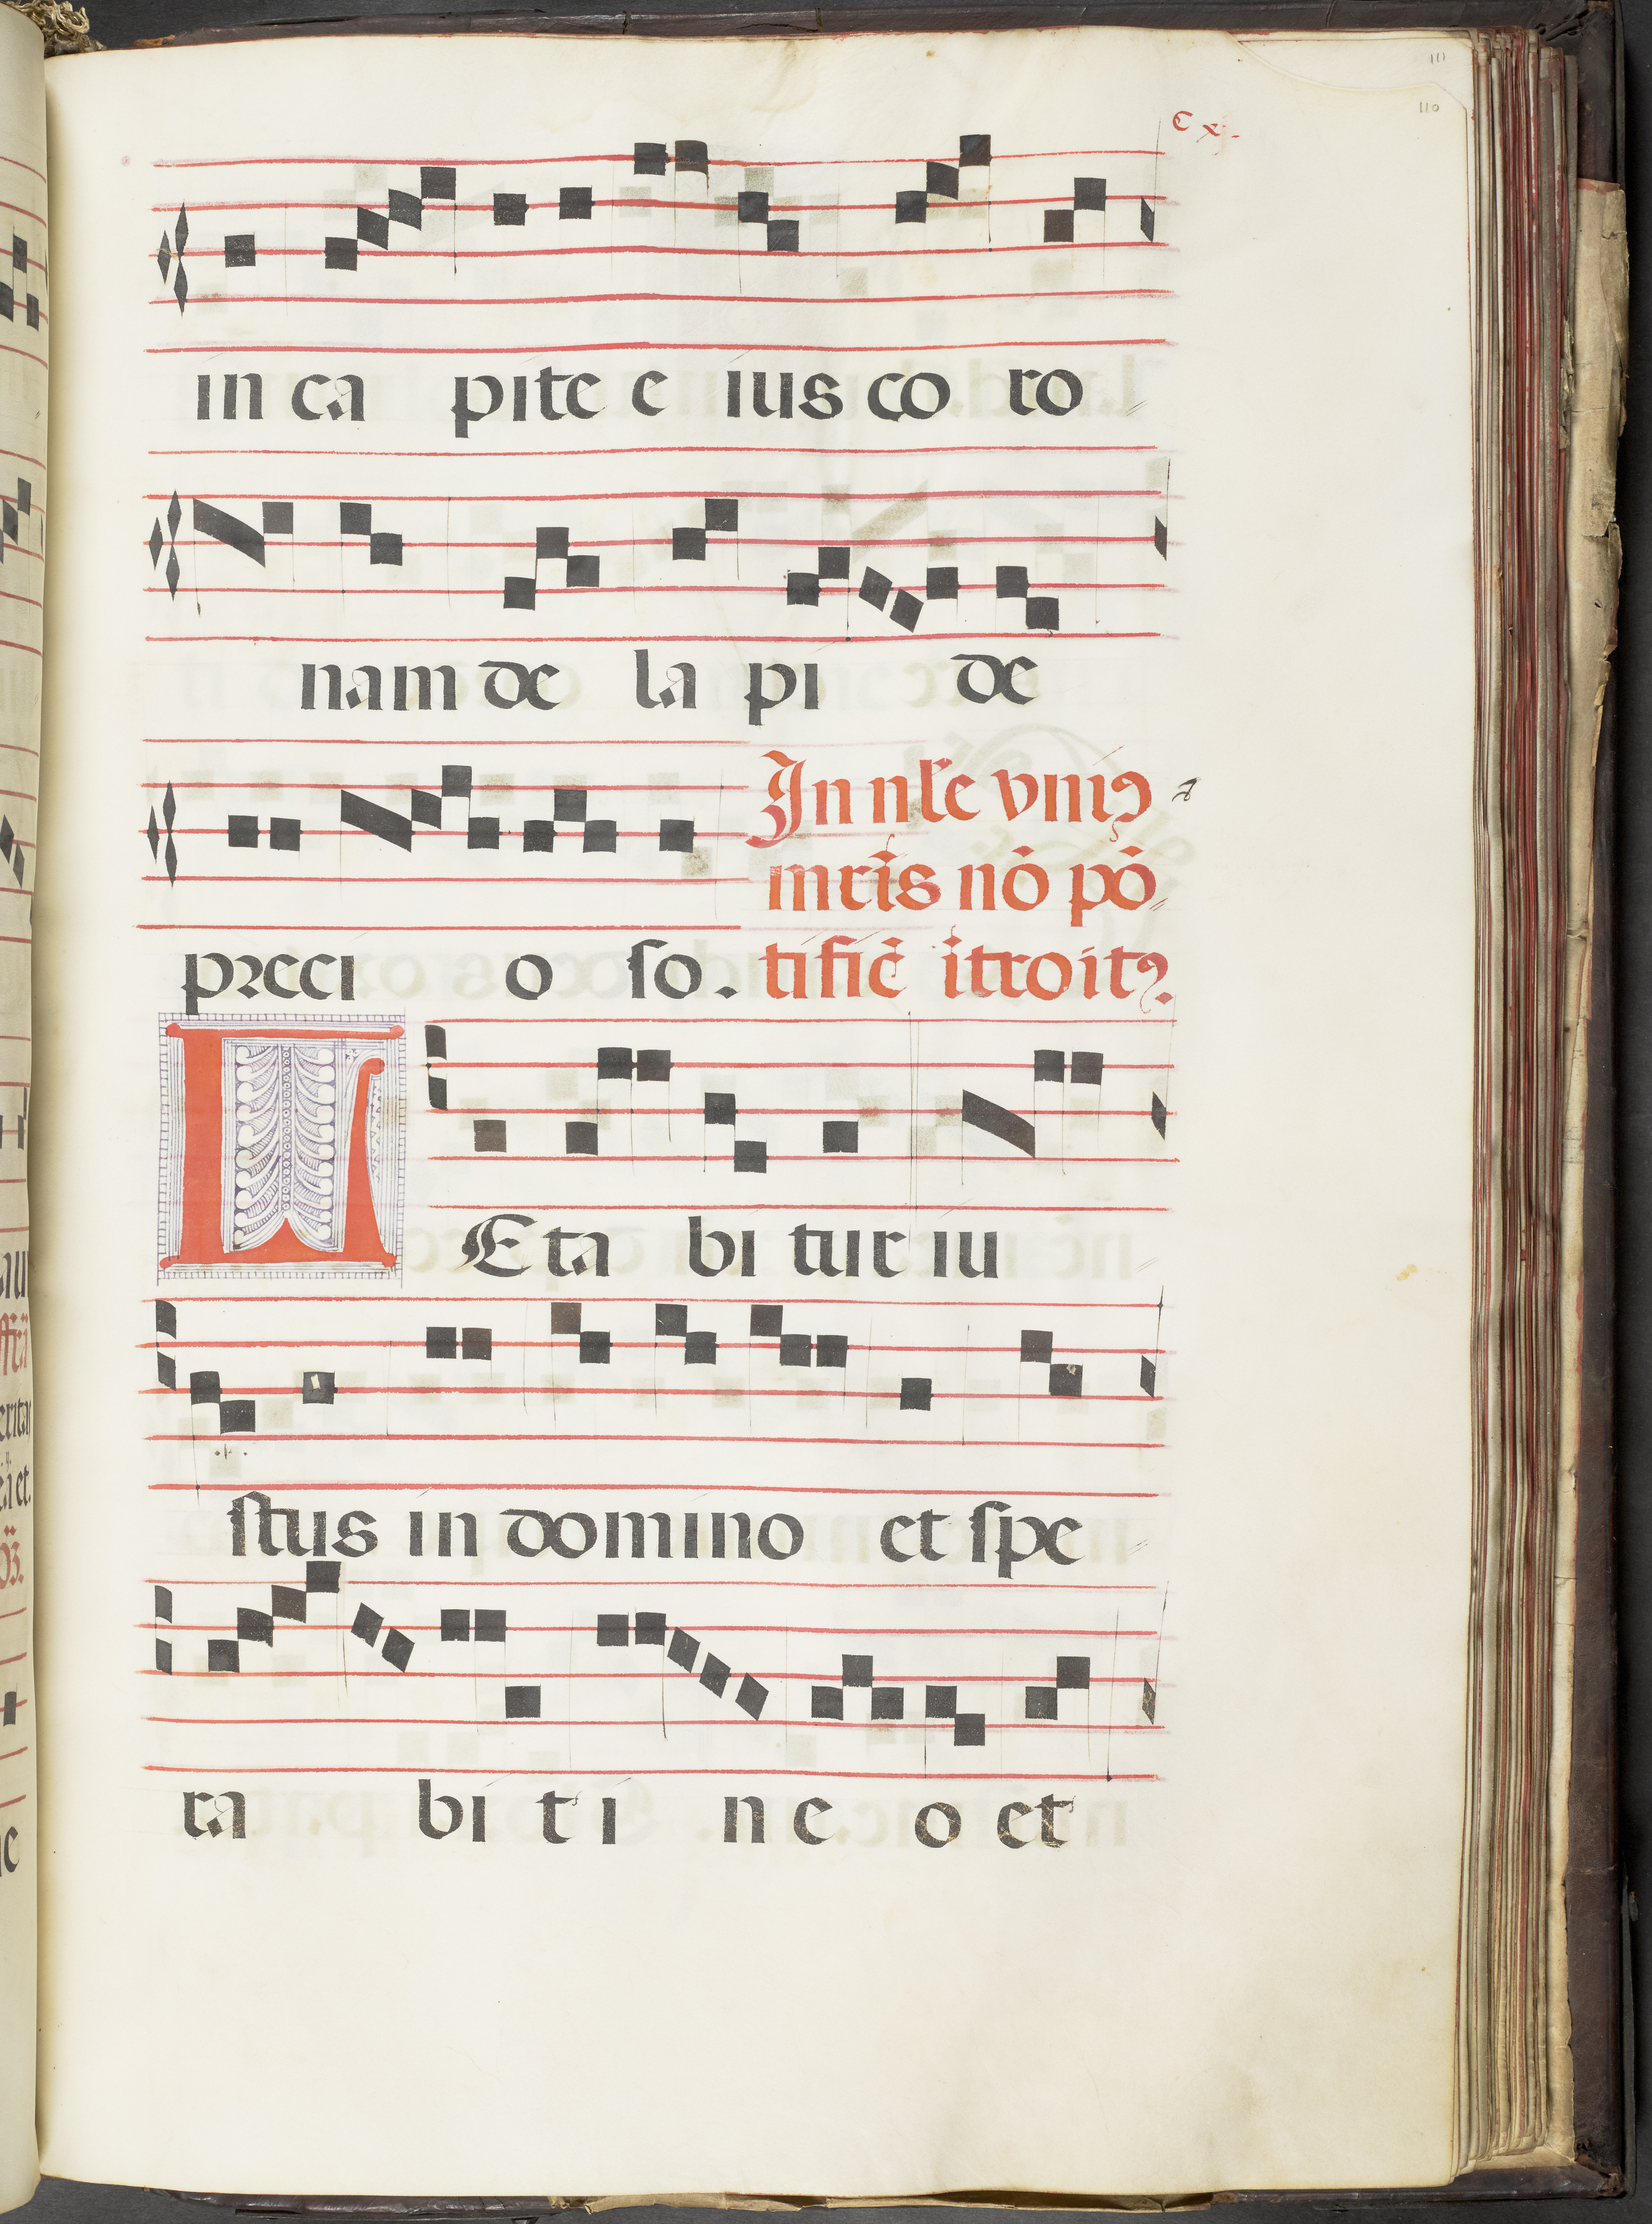 111
110
C x.
in ca pite e ius co ro
nam de la pi de
In nr̄e vniꝯ
mrīs nō pō
preci o so. tifiē ītroitꝯ.
LEta bi tur iu
stus in domino et spe
ra bi t i n e o et